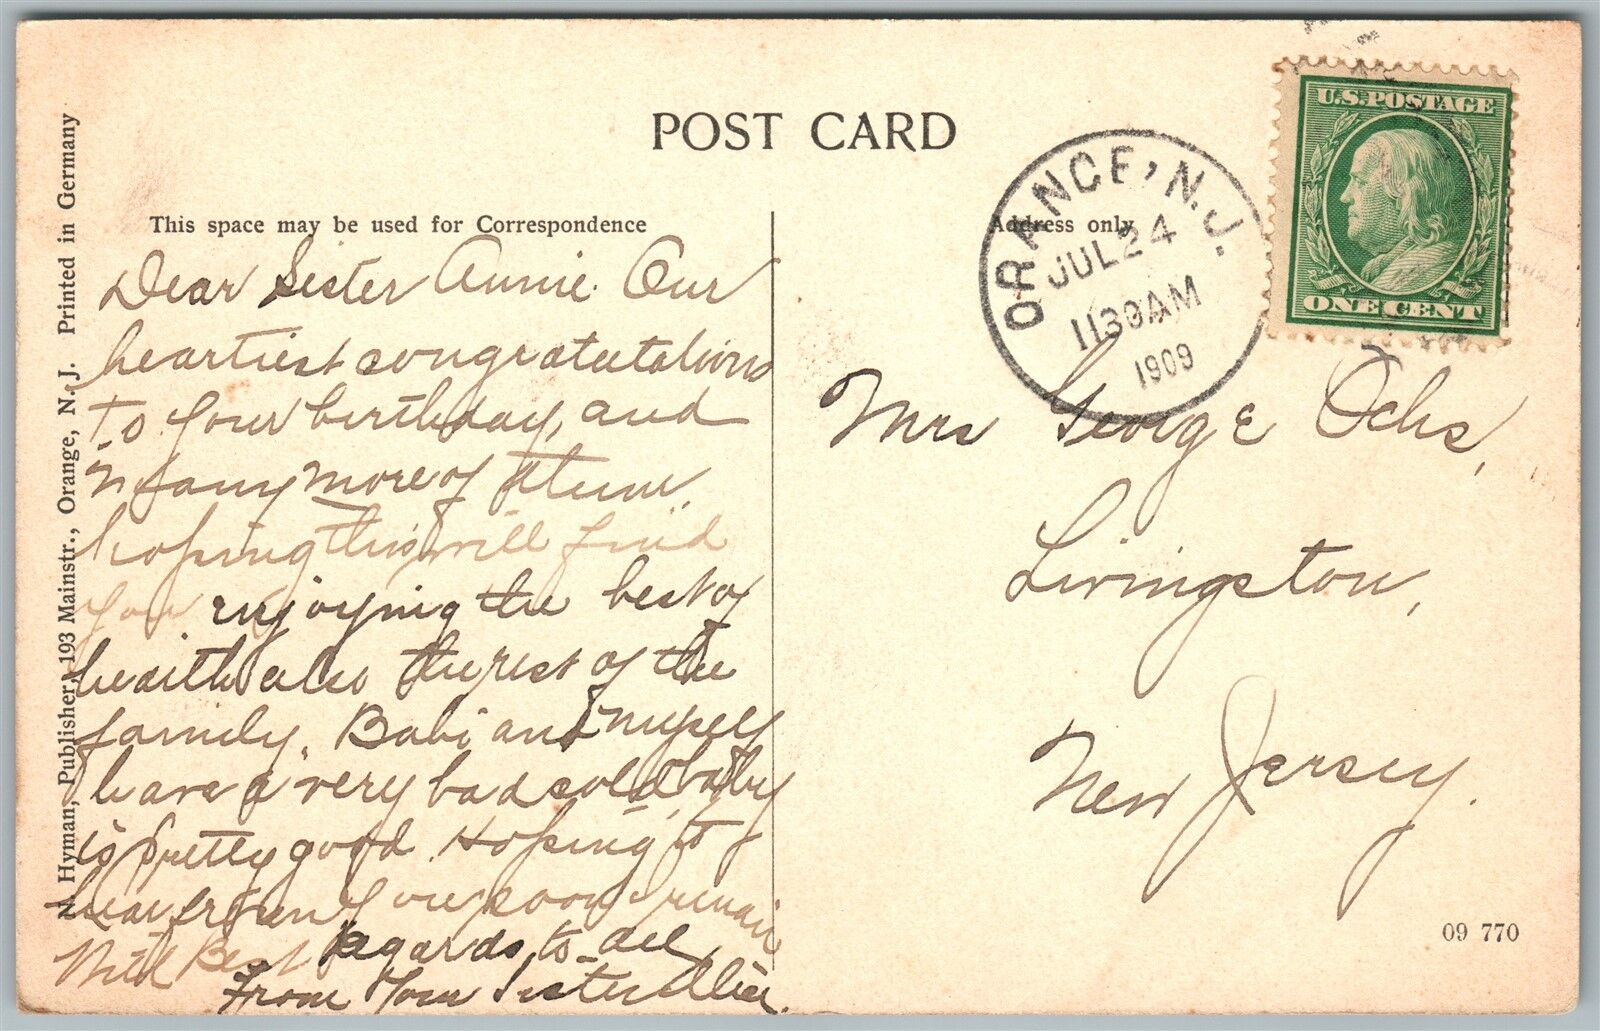 POST CARD
This space may be used for Correspondence
Address only
N. Hyman, Publisher, 193 Mainstr., Orange, N. J. Printed in Germany
ORANGE, N.J.
JUL 24
1130AM
1909
U.S. POSTAGE
ONE CENT
Dear Sister Annie. Our
heartiest congratulations
to your birthday, and
many more of them,
hoping this will find
you enjoying the best of
health also the rest of the
family. Babi and myself
have a very bad cold, baby
is pretty good. Hoping to
hear from you soon I remain
With Best Regards to all
From Your Sister
Mrs George Ochs,
Livingston,
New Jersey.
09 770